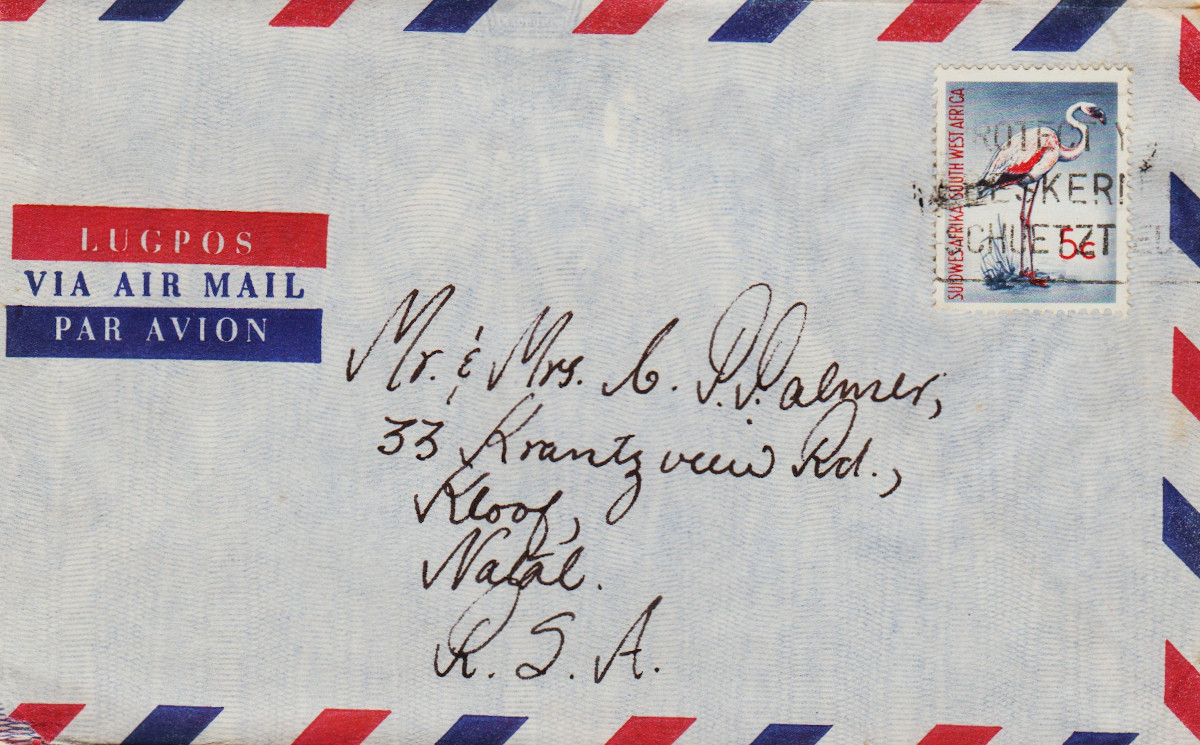 SUIDWES-AFRIKA SOUTH WEST AFRICA
5c
ROTECT Y
BESKERM
CHUETZT EU
LUGPOS
VIA AIR MAIL
PAR AVION
Mr. & Mrs. C. P. Palmer,
33 Krantzview Rd.,
Kloof,
Natal.
R. S. A.